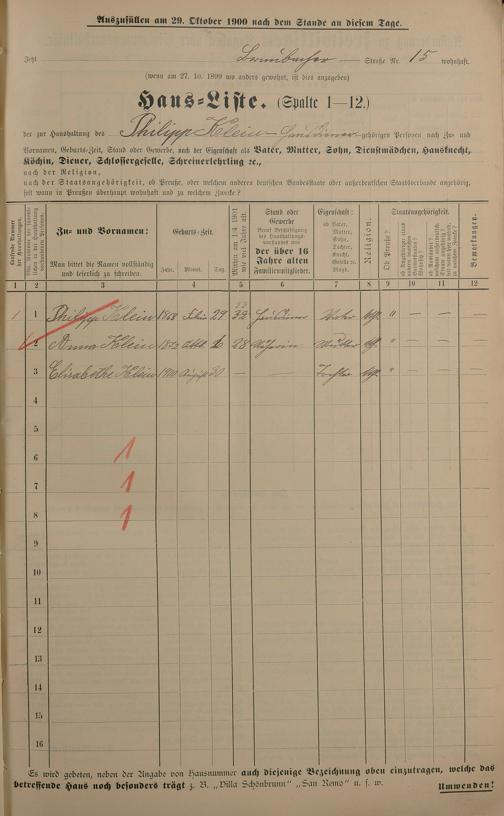 Auszufüllen am 29. Oktober 1900 nach dem Stande an diesem Tage.
Jetzt Straße Nr. 15 wohnhaft.
(wenn am 27. 10. 1899 wo anders gewohnt, ist dies anzugeben)
Haus-Liste. (Spalte 1—12.)
des zur Haushaltung des Philipp Klein gehörigen Personen nach Zu- und
Vornamen, Geburts-Zeit, Stand oder Gewerbe, nach der Eigenschaft als Vater, Mutter, Sohn, Dienstmädchen, Hausknecht,
Köchin, Diener, Schlossergeselle, Schreinerlehrling ꝛc.,
nach der Religion,
nach der Staatsangehörigkeit, ob Preuße, oder welchem anderen deutschen Bundesstaate oder außerdeutschen Staatsverbande angehörig,
seit wann in Preußen überhaupt wohnhaft und zu welchem Zwecke?
Zu- und Vornamen:
Man bittet die Namen vollständig
und leserlich zu schreiben.
Geburts-Zeit.
Jahr. Monat. Tag.
Mithin am 1./4. 1901
wie viel Jahre alt.
Stand oder
Gewerbe
der über 16
Jahre alten
Familienmitglieder.
Eigenschaft:
ob Vater,
Mutter,
Sohn,
Tochter,
Knecht,
Geselle ꝛc.
Magd.
Religion.
Staatsangehörigkeit.
Ob Preuße?
Bemerkungen.
1 2 3 4 5 6 7 8 9 10 11 12
1 1 Philipp Klein 1868 29 32 Vater " — — —
2 Anna Klein 28 Näherin Mutter " — — —
3 Elisabethe Klein 1900 August 30 — — Tochter " — — —
4
5
6 1
7 1
8 1
9
10
11
12
13
14
15
16
Es wird gebeten, neben der Angabe von Hausnummer auch diejenige Bezeichnung oben einzutragen, welche das
betreffende Haus noch besonders trägt z. B. „Villa Schönbrunn" „San Remo" u. s. w.
Umwenden!